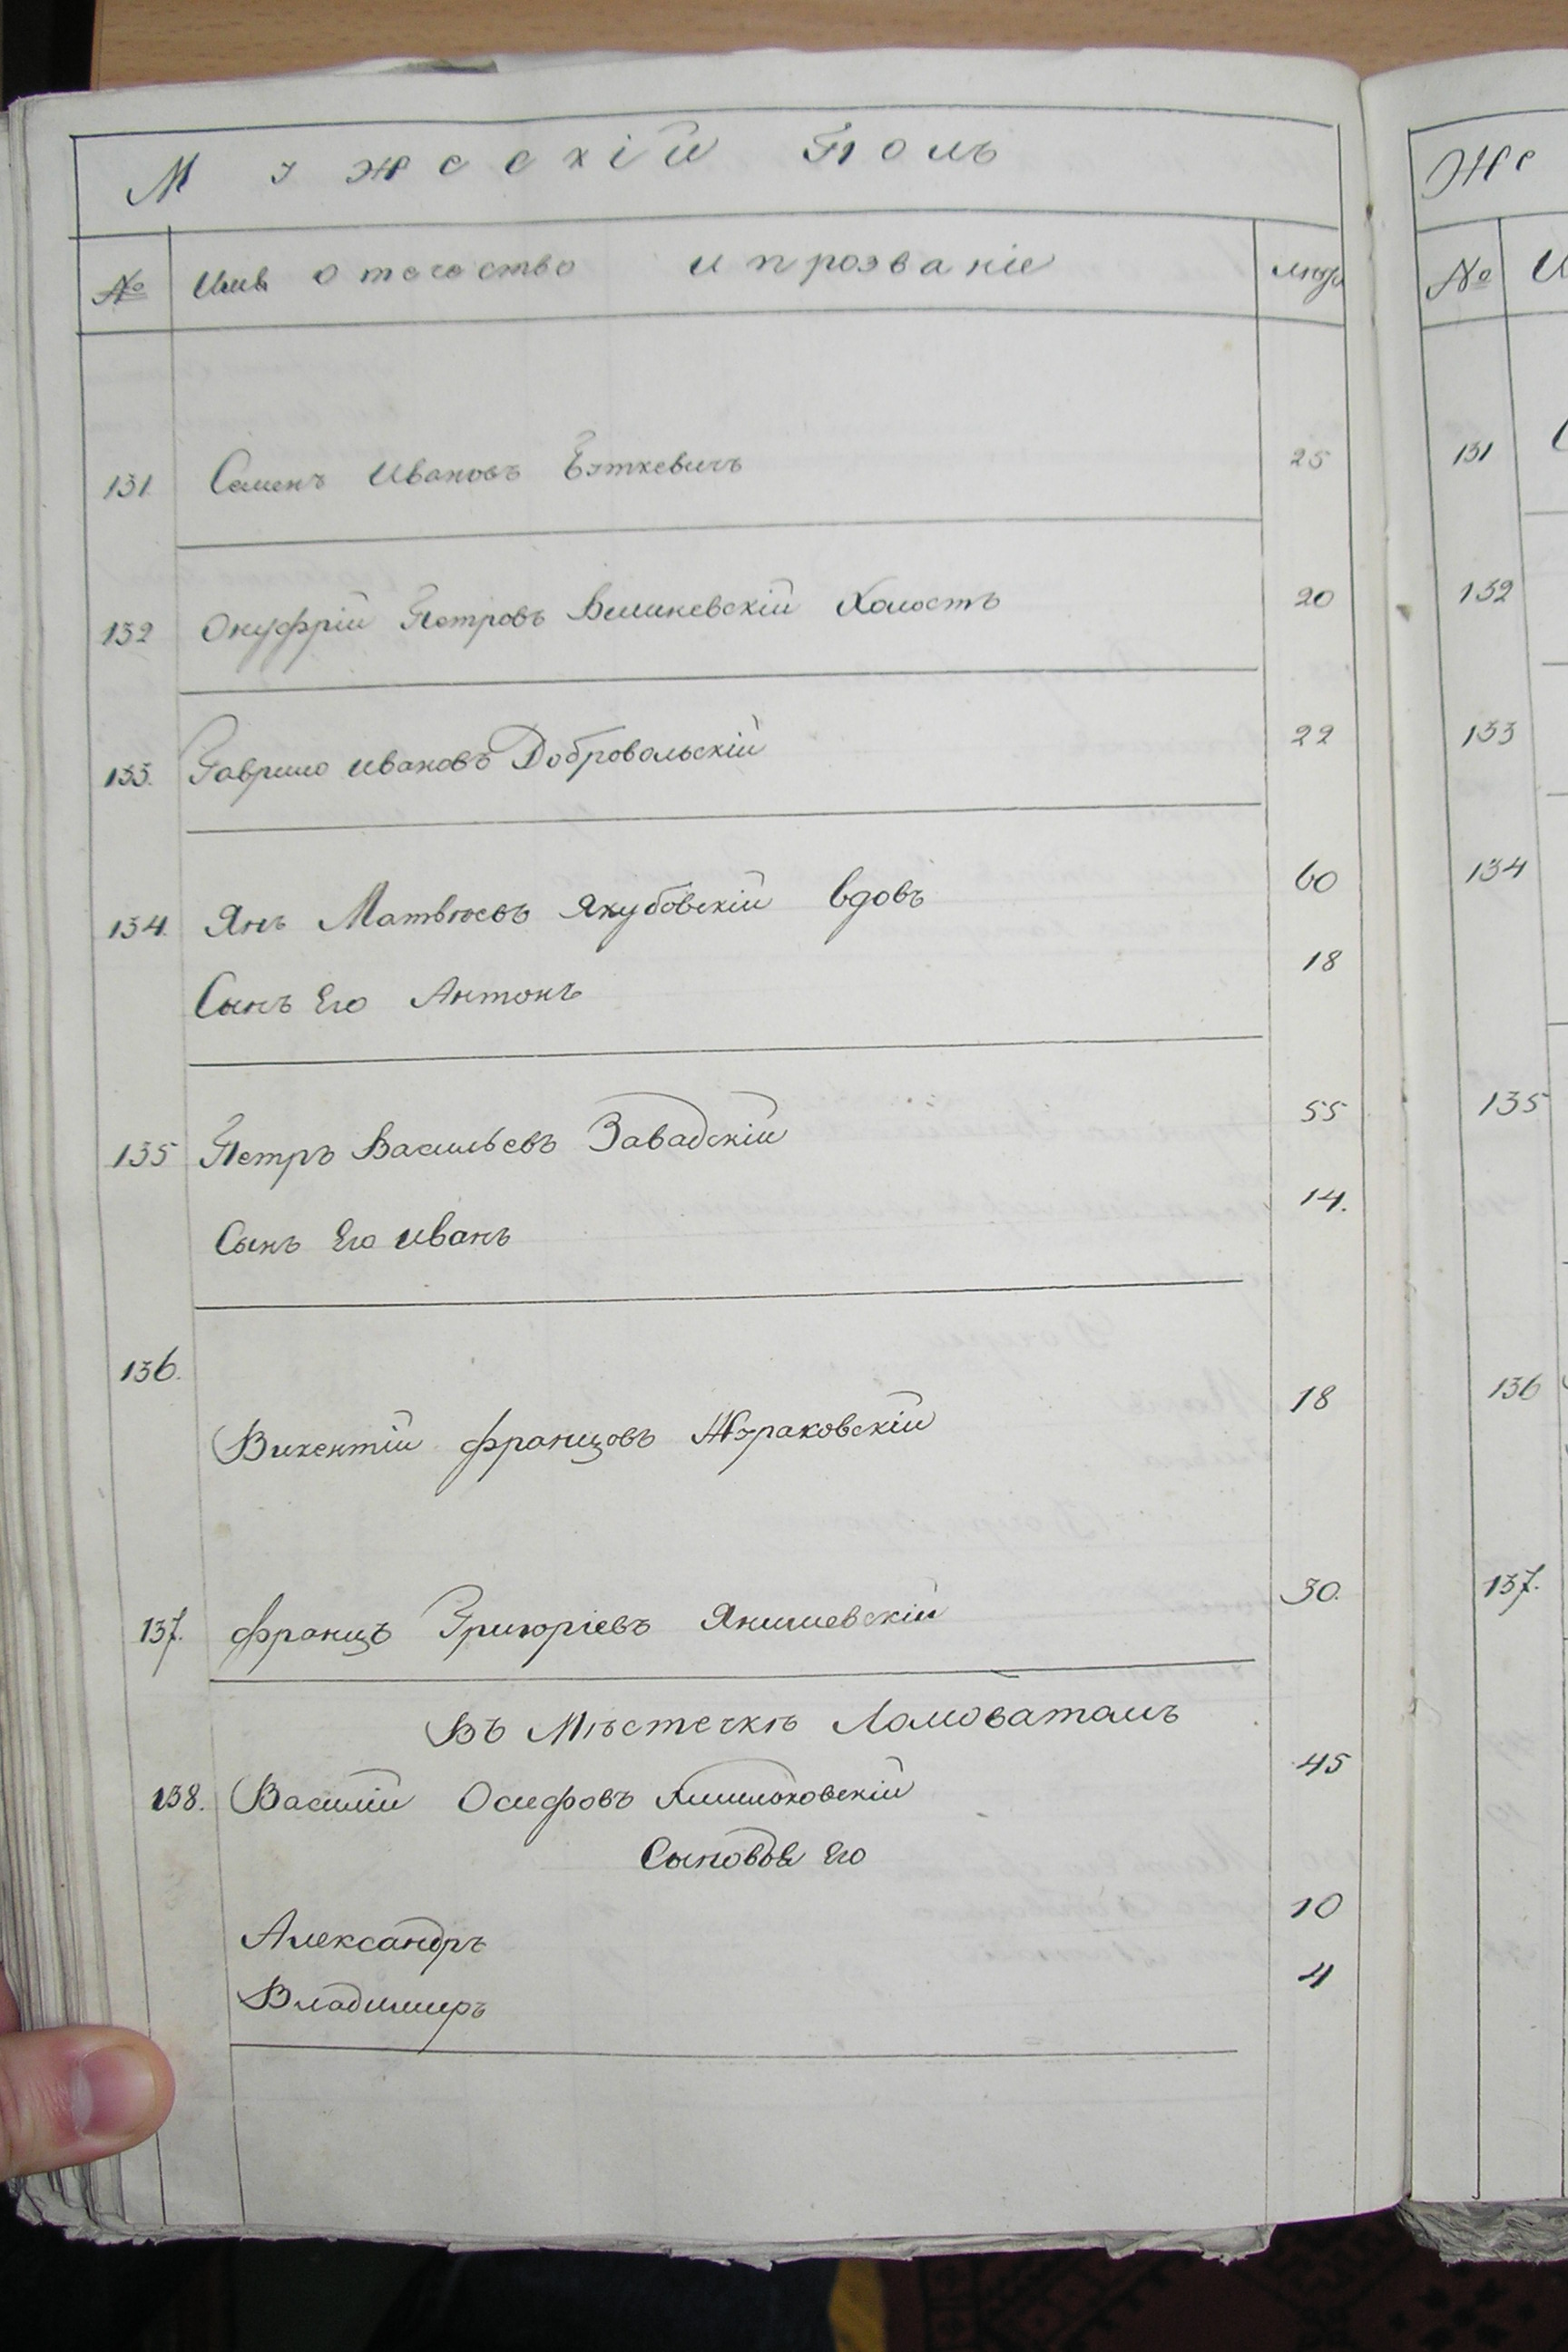 Мужескій Полъ
№ Имя отечество и прозваніе лѣта
131 Семенъ Ивановъ Бэткевичъ 25
132 Онуфрій Петровъ Вишневскій Холостъ 20
133. Гаврило Ивановъ Добровольскій 22
134. Янъ Матвѣевъ Якубовскій вдовъ 60
Сынъ Его Антонъ 18
135 Петръ Васильевъ Завадскій 55
Сынъ Его Иванъ 14.
136.
Викентій Францовъ Жураковскій 18
137. Францъ Григоріевъ Янишевскій 30.
Въ Мѣстечкѣ Ломоватомъ
138. Василій Осифовъ 45
Сыновья Его
Александръ 10
Владимиръ 4
Же
№ И
131
132
133
134
135
136
137.